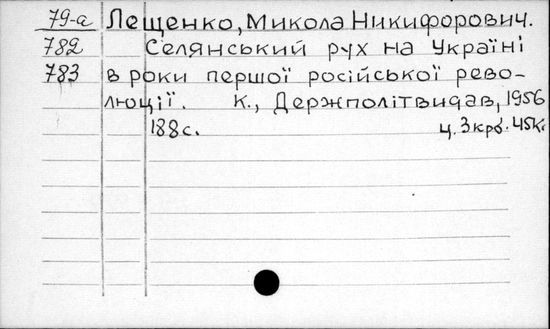 79-а Лещенко, Микола Никифорович.
782 Селянський рух на Україні
783 в роки першої російської рево-
люції. К., Держполітвидав, 1956
188 с. ц. 3 крб. 45к.